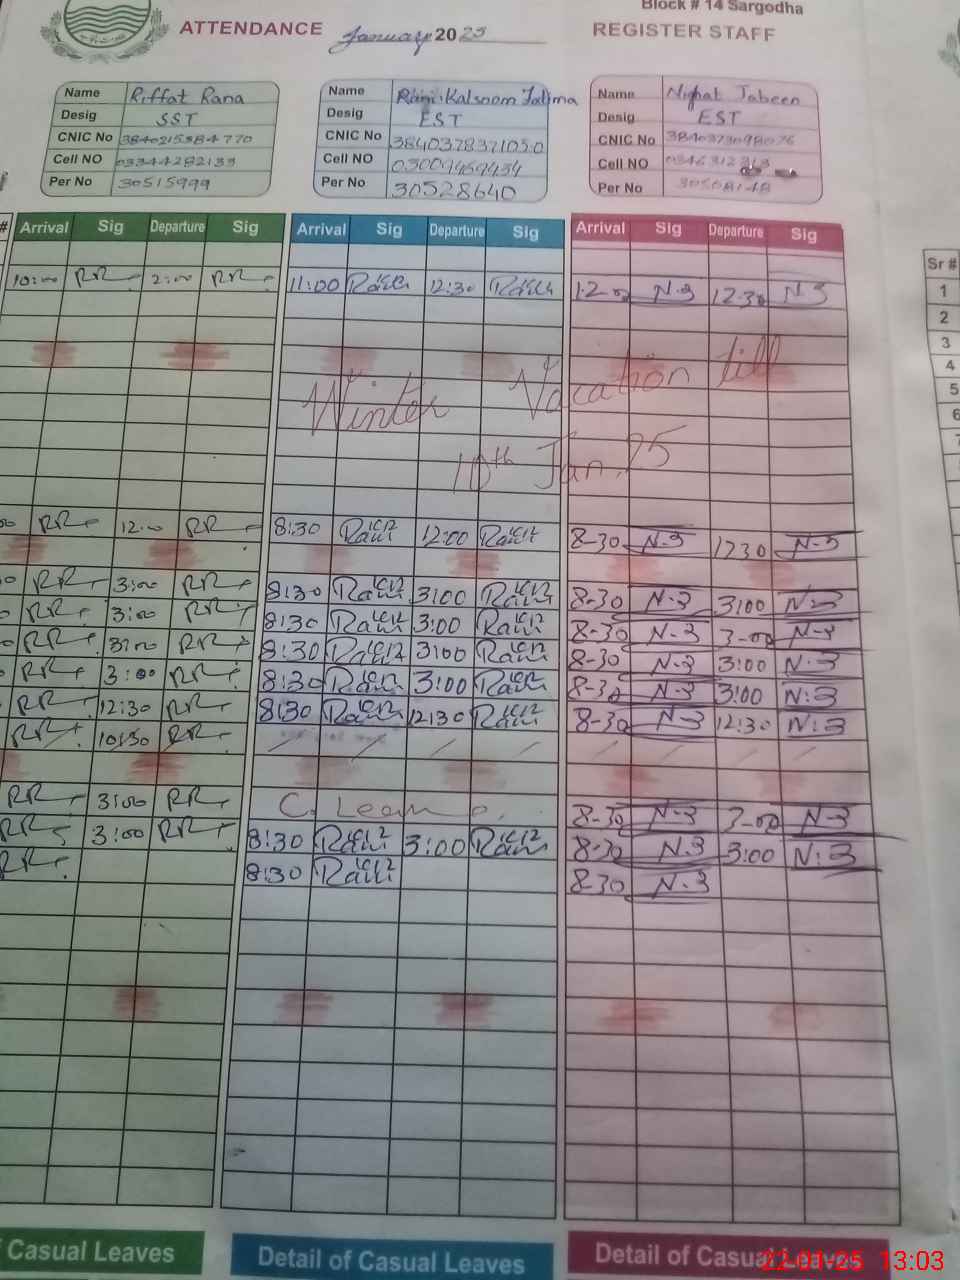 Block # 14 Sargodha
ATTENDANCE January 2025 REGISTER STAFF
Name Riffat Rana
Desig SST
CNIC No
Cell NO 03344282133
Per No 30515999
Name Rani Kalsoom Fatima
Desig EST
CNIC No 3840378371050
Cell NO 03009469434
Per No 30528640
Name Nighat Jabeen
Desig EST
CNIC No 3840373098076
Cell NO
Per No 30508148
# Arrival Sig Departure Sig Arrival Sig Departure Sig Arrival Sig Departure Sig
Sr #
1
2
3
4
5
6
7
10:00 RR 2:00 RR 11:00 Rani 12:30 Rani N.J 12-30 N.J
Winter Vacation till
10th Jan. 25
RR 12:00 RR 8:30 Rani 12:00 Rani 8-30 N.J 1230 N.J
RR 3:00 RR 8:30 Rani 3:00 Rani 8-30 N.J 3:00 N.J
RR 3:00 RR 8:30 Rani 3:00 Rani 8-30 N.J 3-00 N.J
RR 3:00 RR 8:30 Rani 3:00 Rani 8-30 N.J 3:00 N.J
RR 3:00 RR 8:30 Rani 3:00 Rani 8-30 N.J 3:00 N.J
RR 12:30 RR 8:30 Rani 12:30 Rani 8-30 N.J 12:30 N.J
RR 10:30 RR
RR 3:00 RR C. 8-30 N.J 3-00 N.J
RR 3:00 RR 8:30 Rani 3:00 Rani 8-30 N.J 3:00 N.J
RR 8:30 Rani 8-30 N.J
f Casual Leaves Detail of Casual Leaves Detail of Casual Leaves
22-01-25 13:03